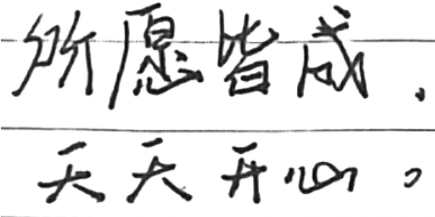 所愿皆成.
天天开心。